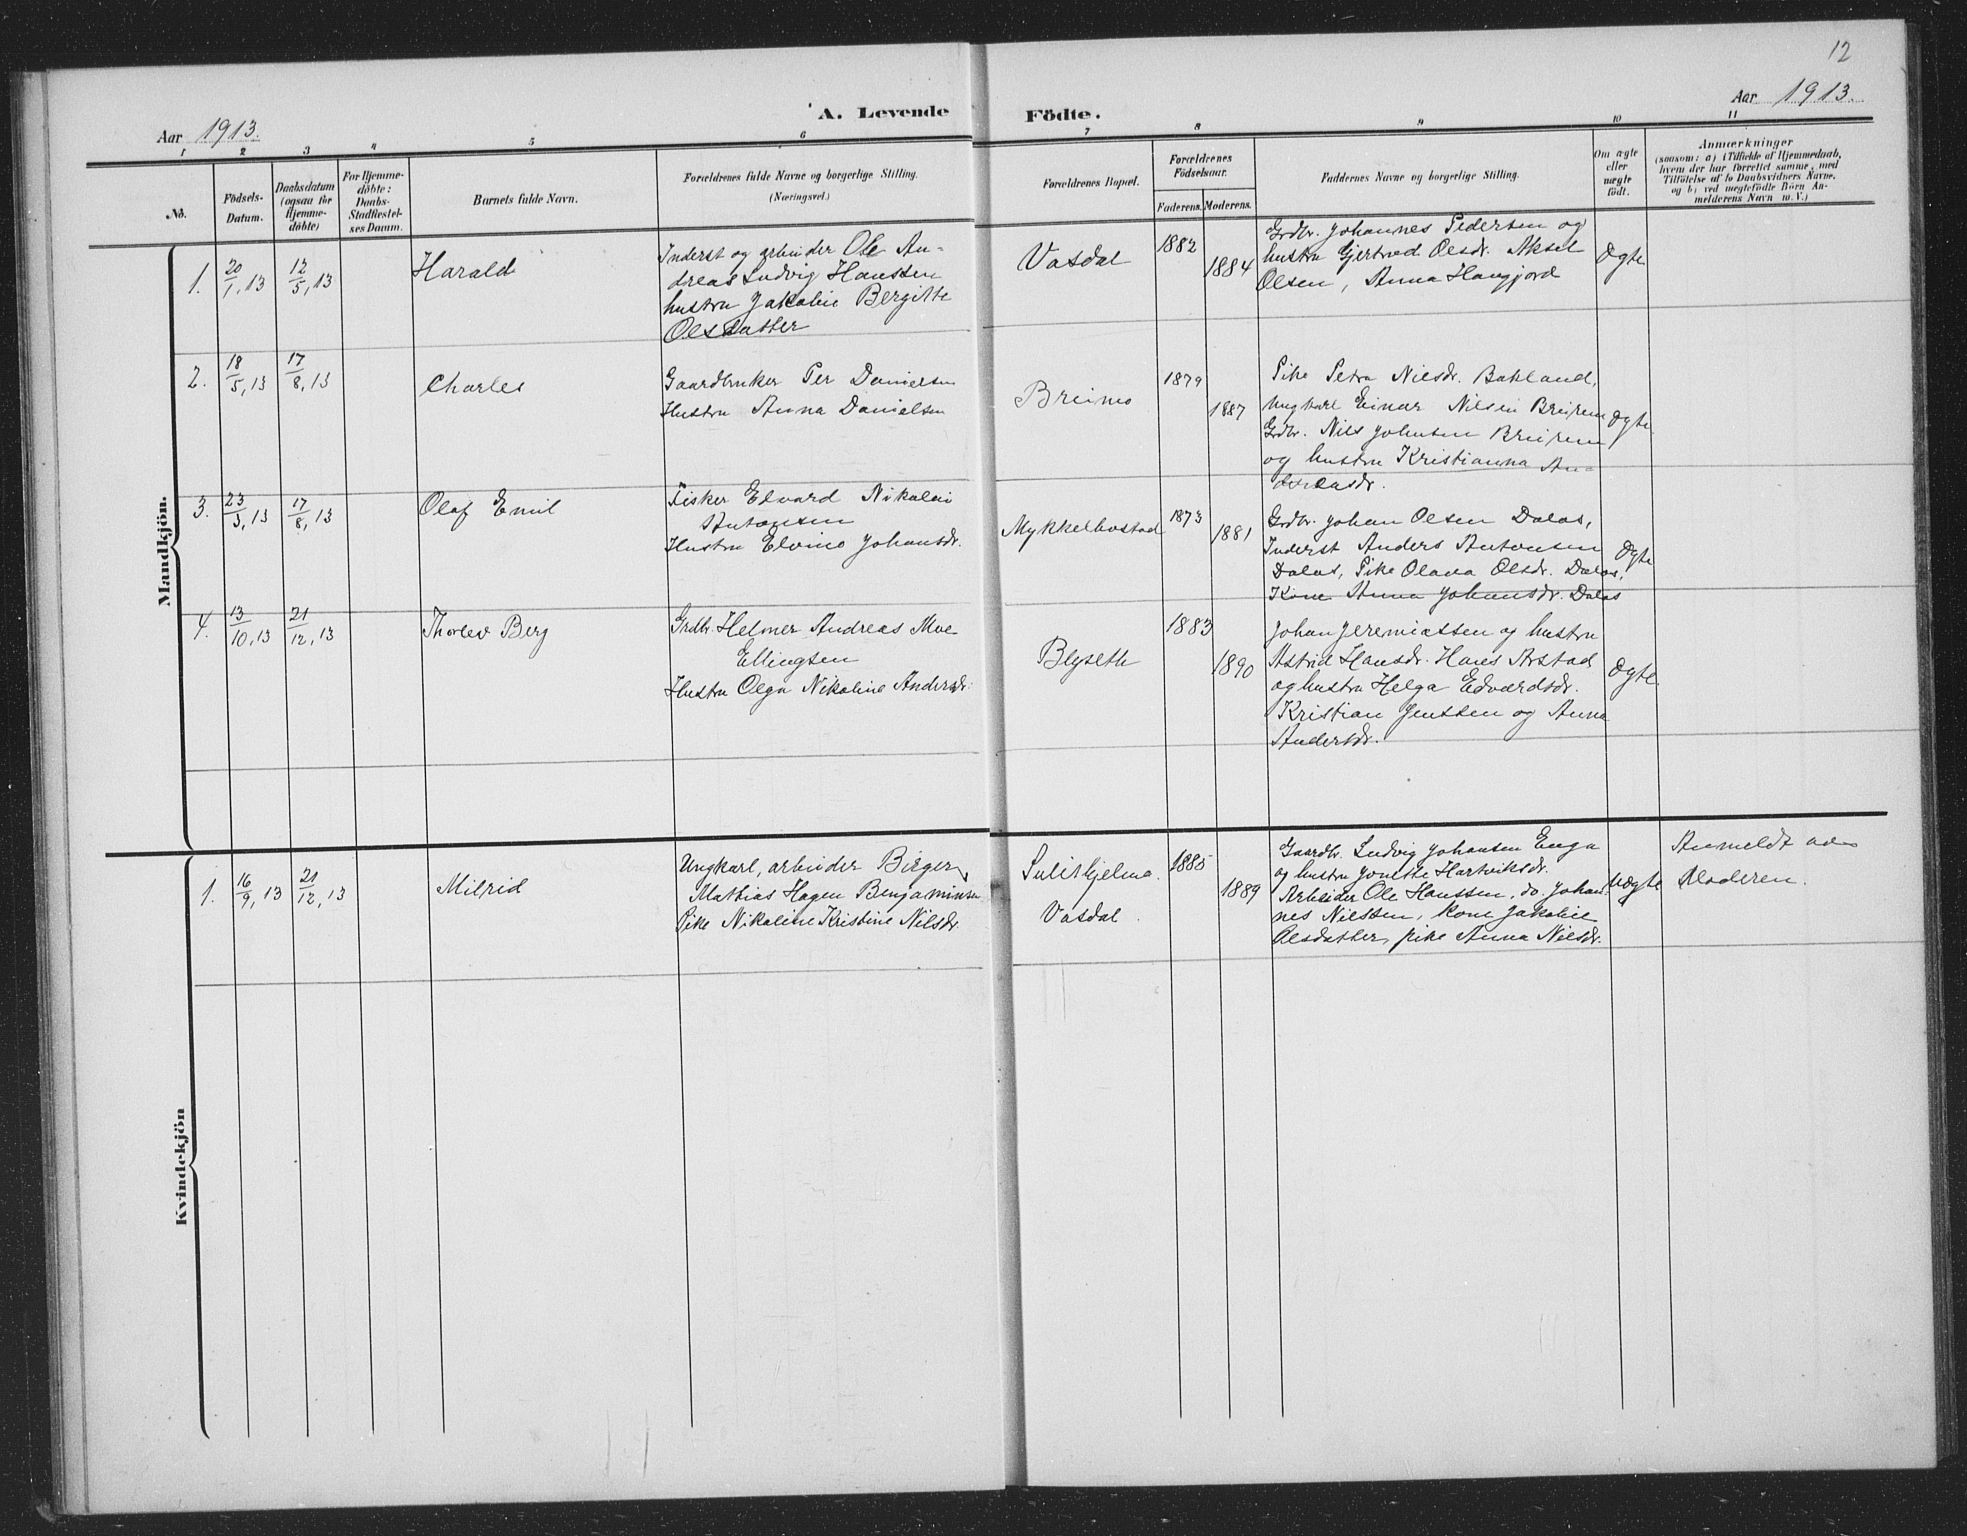 12
Aar 1913.
A. Levende Födte.
Aar 1913.
1 2 3 4 5 6 7 8 9 10 11
No.
Födsels-
Datum.
Daabsdatum
(ogsaa for
Hjemme-
döbte)
For Hjemme-
döbte:
Daabs-
Stadfæstel-
ses Datum.
Barnets fulde Navn.
Forældrenes fulde Navne og borgerlige Stilling.
(Næringsvei.)
Forældrenes Bopæl.
Forældrenes
Födselsaar.
Faderens. Moderens.
Faddernes Navne og borgerlige Stilling.
Om ægte
eller
uægte
födt.
Anmærkninger
(saasom: a) i Tilfælde af Hjemmedaab,
hvem der har forrettet samme, med
Tilföielse af to Daabsvidners Navne,
og b) ved uægtefödte Börn An-
melderens Navn m. V.)
Mandkjön.
1.
20/1, 13
12/5, 13
Harald
Inderst og arbeider Ole An-
dreas Ludvig Hanssen
hustru Jakobie Bergitte
Olsdatter
Vasdal
1882
1884
Grdbr. Johannes Pedersen og
hustru Gjertrud Olsdr. Aksel
Olsen, Anna Haugjord
Ægte
2.
18/5, 13
17/8, 13
Charles
Gaardbruker Per Danielsen
Hustru Anna Danielsen
Breimo
1879
1887
Pike Petra Nielsdr. Bakland,
ungkarl Einar Nilsen Breirem
Grdbr. Nils Johnsen Breirem
og hustru Kristianna An-
dreasdr.
Ægte
3.
23/3, 13
17/8, 13
Olaf Emil
Fisker Edvard Nikolai
Antonsen
Hustru Elvine Johansdr.
Mykkelbostad
1873
1881
Grdbr. Johan Olsen Dalas,
Inderst Anders Antonsen
Dalas, Pike Olava Olsdr. Dalas,
Kone Anna Johansdr. Dalas
Ægte
4.
13/10, 13
21/12, 13
Thorlev Berg
Grdbr. Helmer Andreas Moe
Ellingsen
Hustru Olga Nikoline Andersdr.
Blyseth
1883
1890
Johan Jeremiassen og hustru
Astrid Hansdr. Hans Arstad
og hustru Helga Edvardsdr.
Kristian Jenssen og Anna
Andersdr.
Ægte
Kvindekjön
1.
16/9, 13
21/12, 13
Milrid
Ungkarl, arbeider Birger
Mathias Hagen Benjaminsen
Pike Nikoline Kristine Nilsdr.
Sulitjelma.
Vasdal.
1885
1889
Gaardbr. Ludvig Johansen Enga
og hustru Jonette Hartviksdr.
Arbeider Ole Hanssen, do. Johan-
nes Nielssen, kone Jakobie
Olsdatter, pike Anna Nielsdr.
Uægte
Anmeldt av
Moderen.